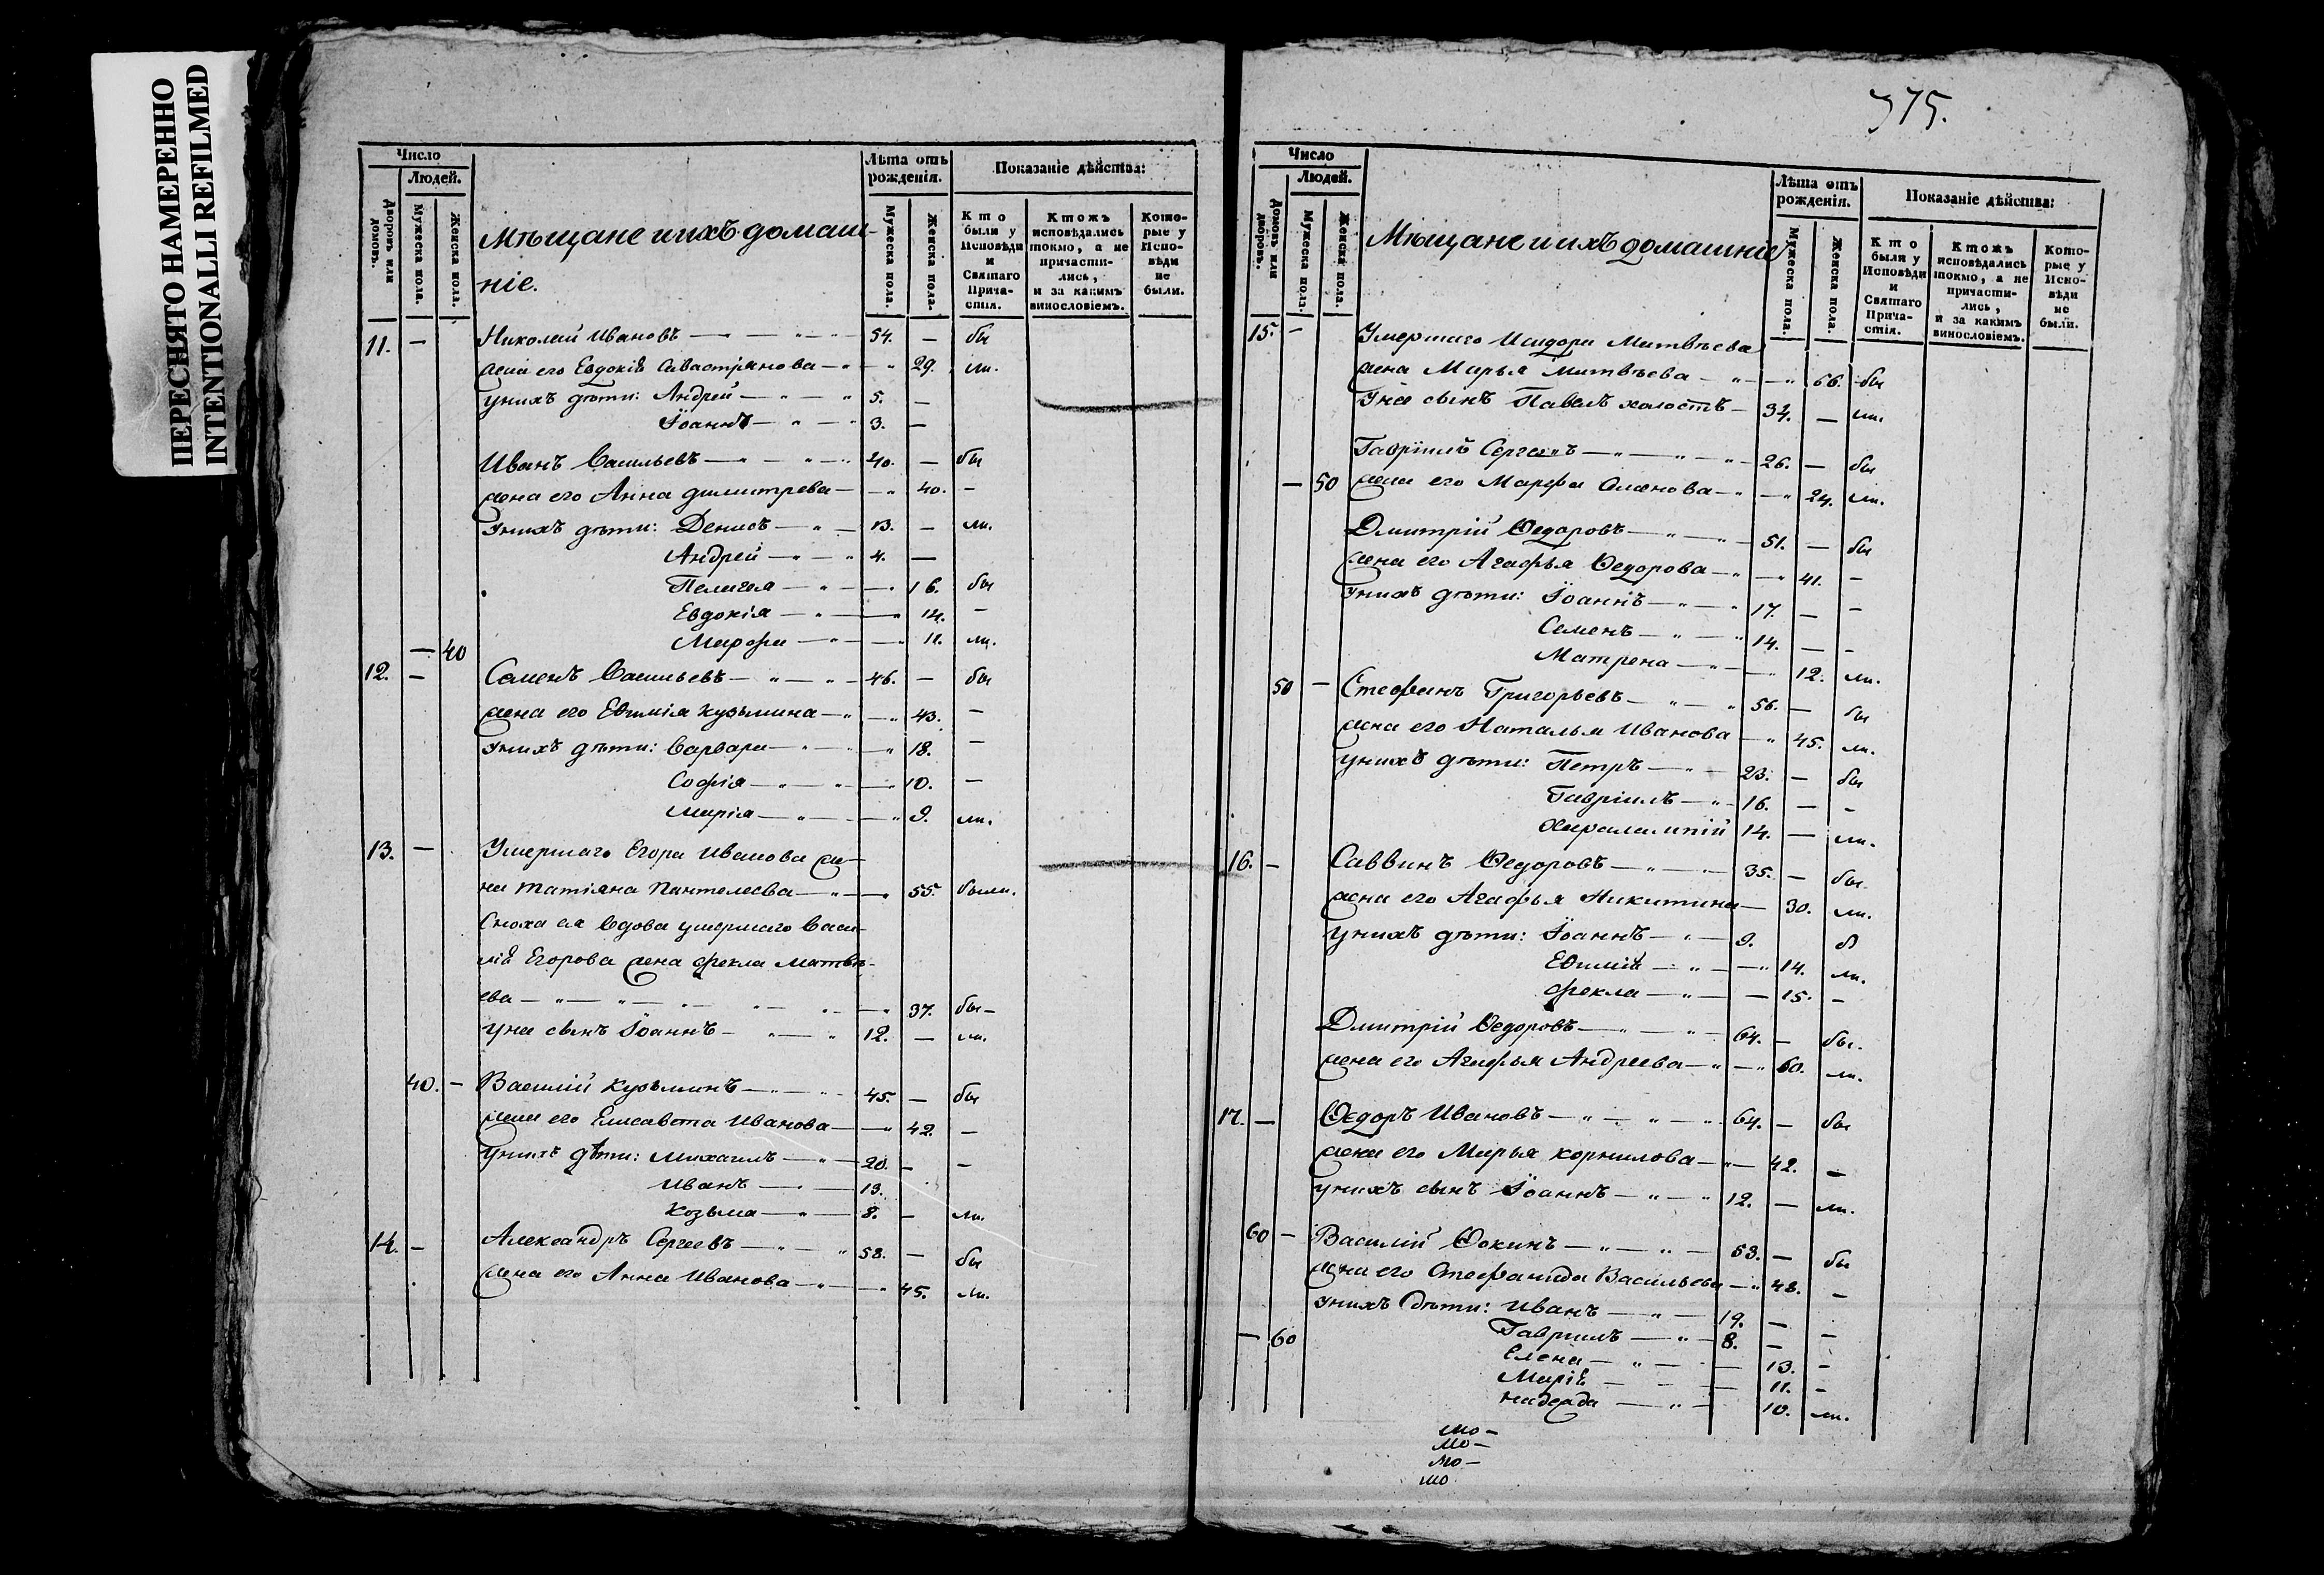 ПЕРЕСНЯТО НАМЕРЕННО
INTENTIONALLI REFILMED
Число
Людей.
Дворовъ или домовъ.
Мужеска пола.
Женска пола.
Мѣщане и ихъ домаш-
ніе.
Лѣта отъ рожденія.
Мужеска пола.
Женска пола.
Показаніе дѣйства:
Кто были у Исповѣди и Святаго Прича-стія.
Ктожъ исповѣдались токмо, а не причасти-лись, и за какимъ винословіемъ.
Кото-рые у Испо-вѣди не были.
11. — Николай Ивановъ — 54. — бы
жена его Евдокія Савастіянова — 29. ли.
у нихъ дѣти: Андрей — 5. —
Іоаннъ — 3. —
Иванъ Васильевъ — 40. — бы
жена его Анна Димитрева — 40. —
у нихъ дѣти: Денисъ — 13. — ли.
Андрей — 4. —
Пелагея — 16. бы
Евдокія — 14. —
— 40 Марфа — 11. ли.
12. — Семенъ Васильевъ — 46. — бы
жена его Евѳимія Кузьмина — 43. —
у нихъ дѣти: Варвара — 18. —
Софія — 10. —
Марія — 9. ли.
13. — Умершаго Егора Иванова же-
на Татіяна Пантелеева — 55. были.
Сноха ея вдова умершаго Васи-
лія Егорова жена Фекла Матвѣ-
ева — 37. бы —
у неи сынъ Іоаннъ — 12. — ли.
40. — Василій Кузьминъ — 45. — бы
жена его Елисавета Иванова — 42. —
у нихъ дѣти: Михаилъ — 20. — —
Иванъ — 13.
Козьма — 8. — ли.
14. — Александръ Сергеевъ — 58. — бы
жена его Анна Иванова — 45. ли.
375.
Число
Людей.
Домовъ или дворовъ.
Мужеска пола.
Женска пола.
Мѣщане и ихъ домашніе
Лѣта отъ рожденія.
Мужеска пола.
Женска пола.
Показаніе дѣйства:
Кто были у Исповѣди и Святаго Прича-стія.
Ктожъ исповѣдались токмо, а не причасти-лись, и за какимъ винословіемъ.
Кото-рые у Испо-вѣди не были.
15. — Умершаго Исидора Матвѣева
жена Марья Матвѣева — 66. бы
У неи сынъ Павелъ холостъ — 34. — ли.
Гавріилъ Сергеевъ — 26. — бы
— 50 жена его Марфа — 24. ли.
Дмитрій Ѳедоровъ — 51. — бы
жена его Агафья Ѳедорова — 41. —
у нихъ дѣти: Іоаннъ — 17. — —
Семенъ — 14. — —
Матрена — 12. ли.
50 — Стефанъ Григорьевъ — 56. — бы
жена его Наталья Иванова — 45. ли.
у нихъ дѣти: Петръ — 23. — бы
Гавріилъ — 16. — —
Харалампій 14. — ли.
16. — Саввинъ Ѳедоровъ — 35. — бы.
жена его Агафья Никитина — 30. ли.
у нихъ дѣти: Іоаннъ — 9. б
Евѳимія — 14. ли.
Фекла — 15. —
Дмитрій Ѳедоровъ — 64. — бы.
жена его Агафья Андреева — 60. ли.
17. — Ѳедоръ Ивановъ — 64. — бы
жена его Марья Корнилова — 42. —
у нихъ сынъ Іоаннъ — 12. — ли.
60 — Василій Ѳокинъ — 53. — бы
жена его Стефанида Васильева — 48. —
у нихъ дѣти: Иванъ — 19. — —
— 60 Гавриилъ — 8. —
Елена — 13. —
Марія — 11. —
Надежда — 10. ли.